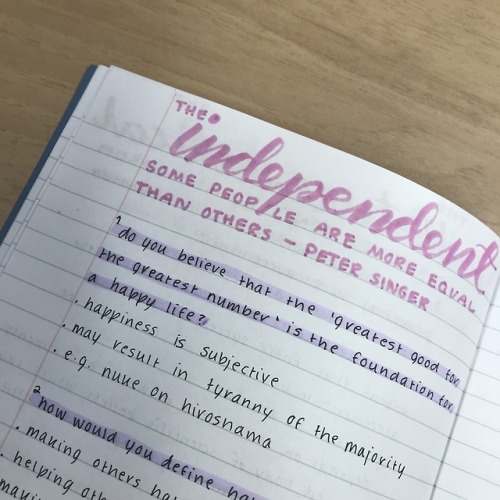 THE
independent
SOME PEOPLE ARE MORE EQUAL
THAN OTHERS - PETER SINGER
1
do you believe that the 'greatest good for
the greatest number' is the foundation for
a happy life?
· happiness is subjective
· may result in tyranny of the majority
· e.g. nuke on hiroshama
2
how would you define
· making others
· helping